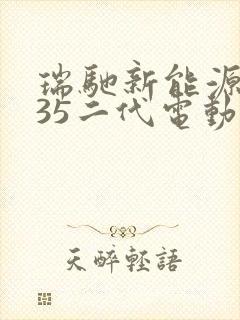 瑞馳新能源
35二代電動
天醉輕語